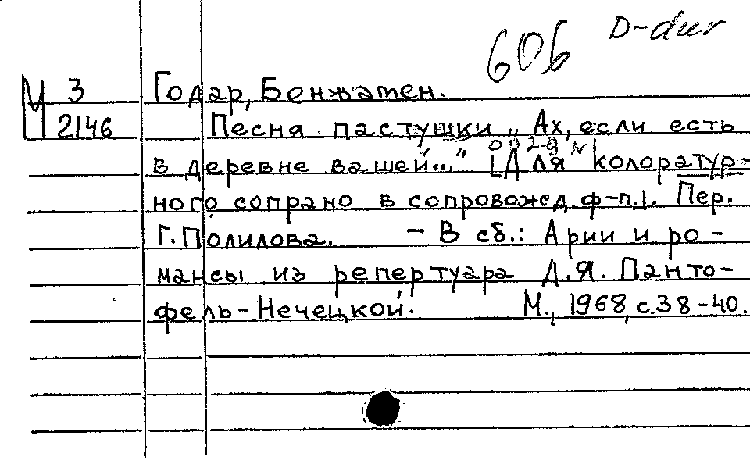 606 D-dur
М 3 Годар, Бенжамен.
2146 Песня пастушки „Ах, если есть
в деревне вашей..." [Для колоратур-
ного сопрано в сопровожд. ф-п.]. Пер.
Г. Полилова. - В сб.: Арии и ро-
мансы из репертуара Д.Я. Панто-
фель-Нечецкой. М., 1968, с.38-40.